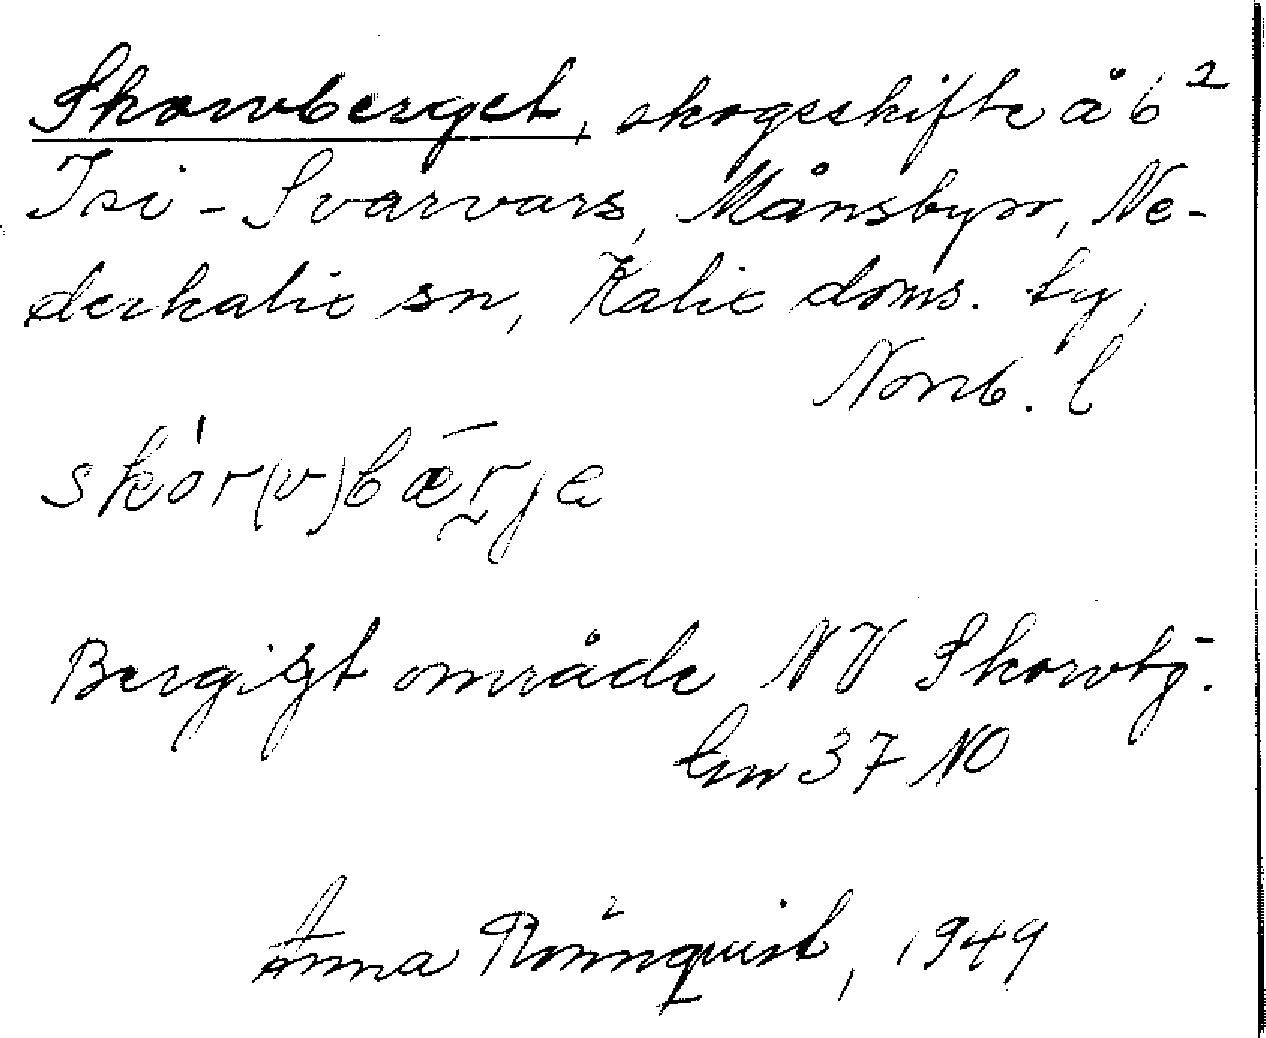 Skorvberget, skogsskifte å 6²
Isi-Svarvars, Månsbyn, Ne-
derkalix sn, Kalix doms. tg,
Norrb. l
skór(v)bæ̅rja
Bergigt område NV Skorvtj.
Gm 37 NO
Anna Rönnqvist, 1949